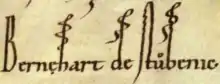 Bernehart de Stůbenie